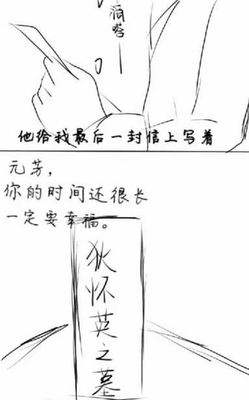 滴答
他给我最后一封信上写着
元芳，
你的时间还很长
一定要幸福。
狄怀英之墓